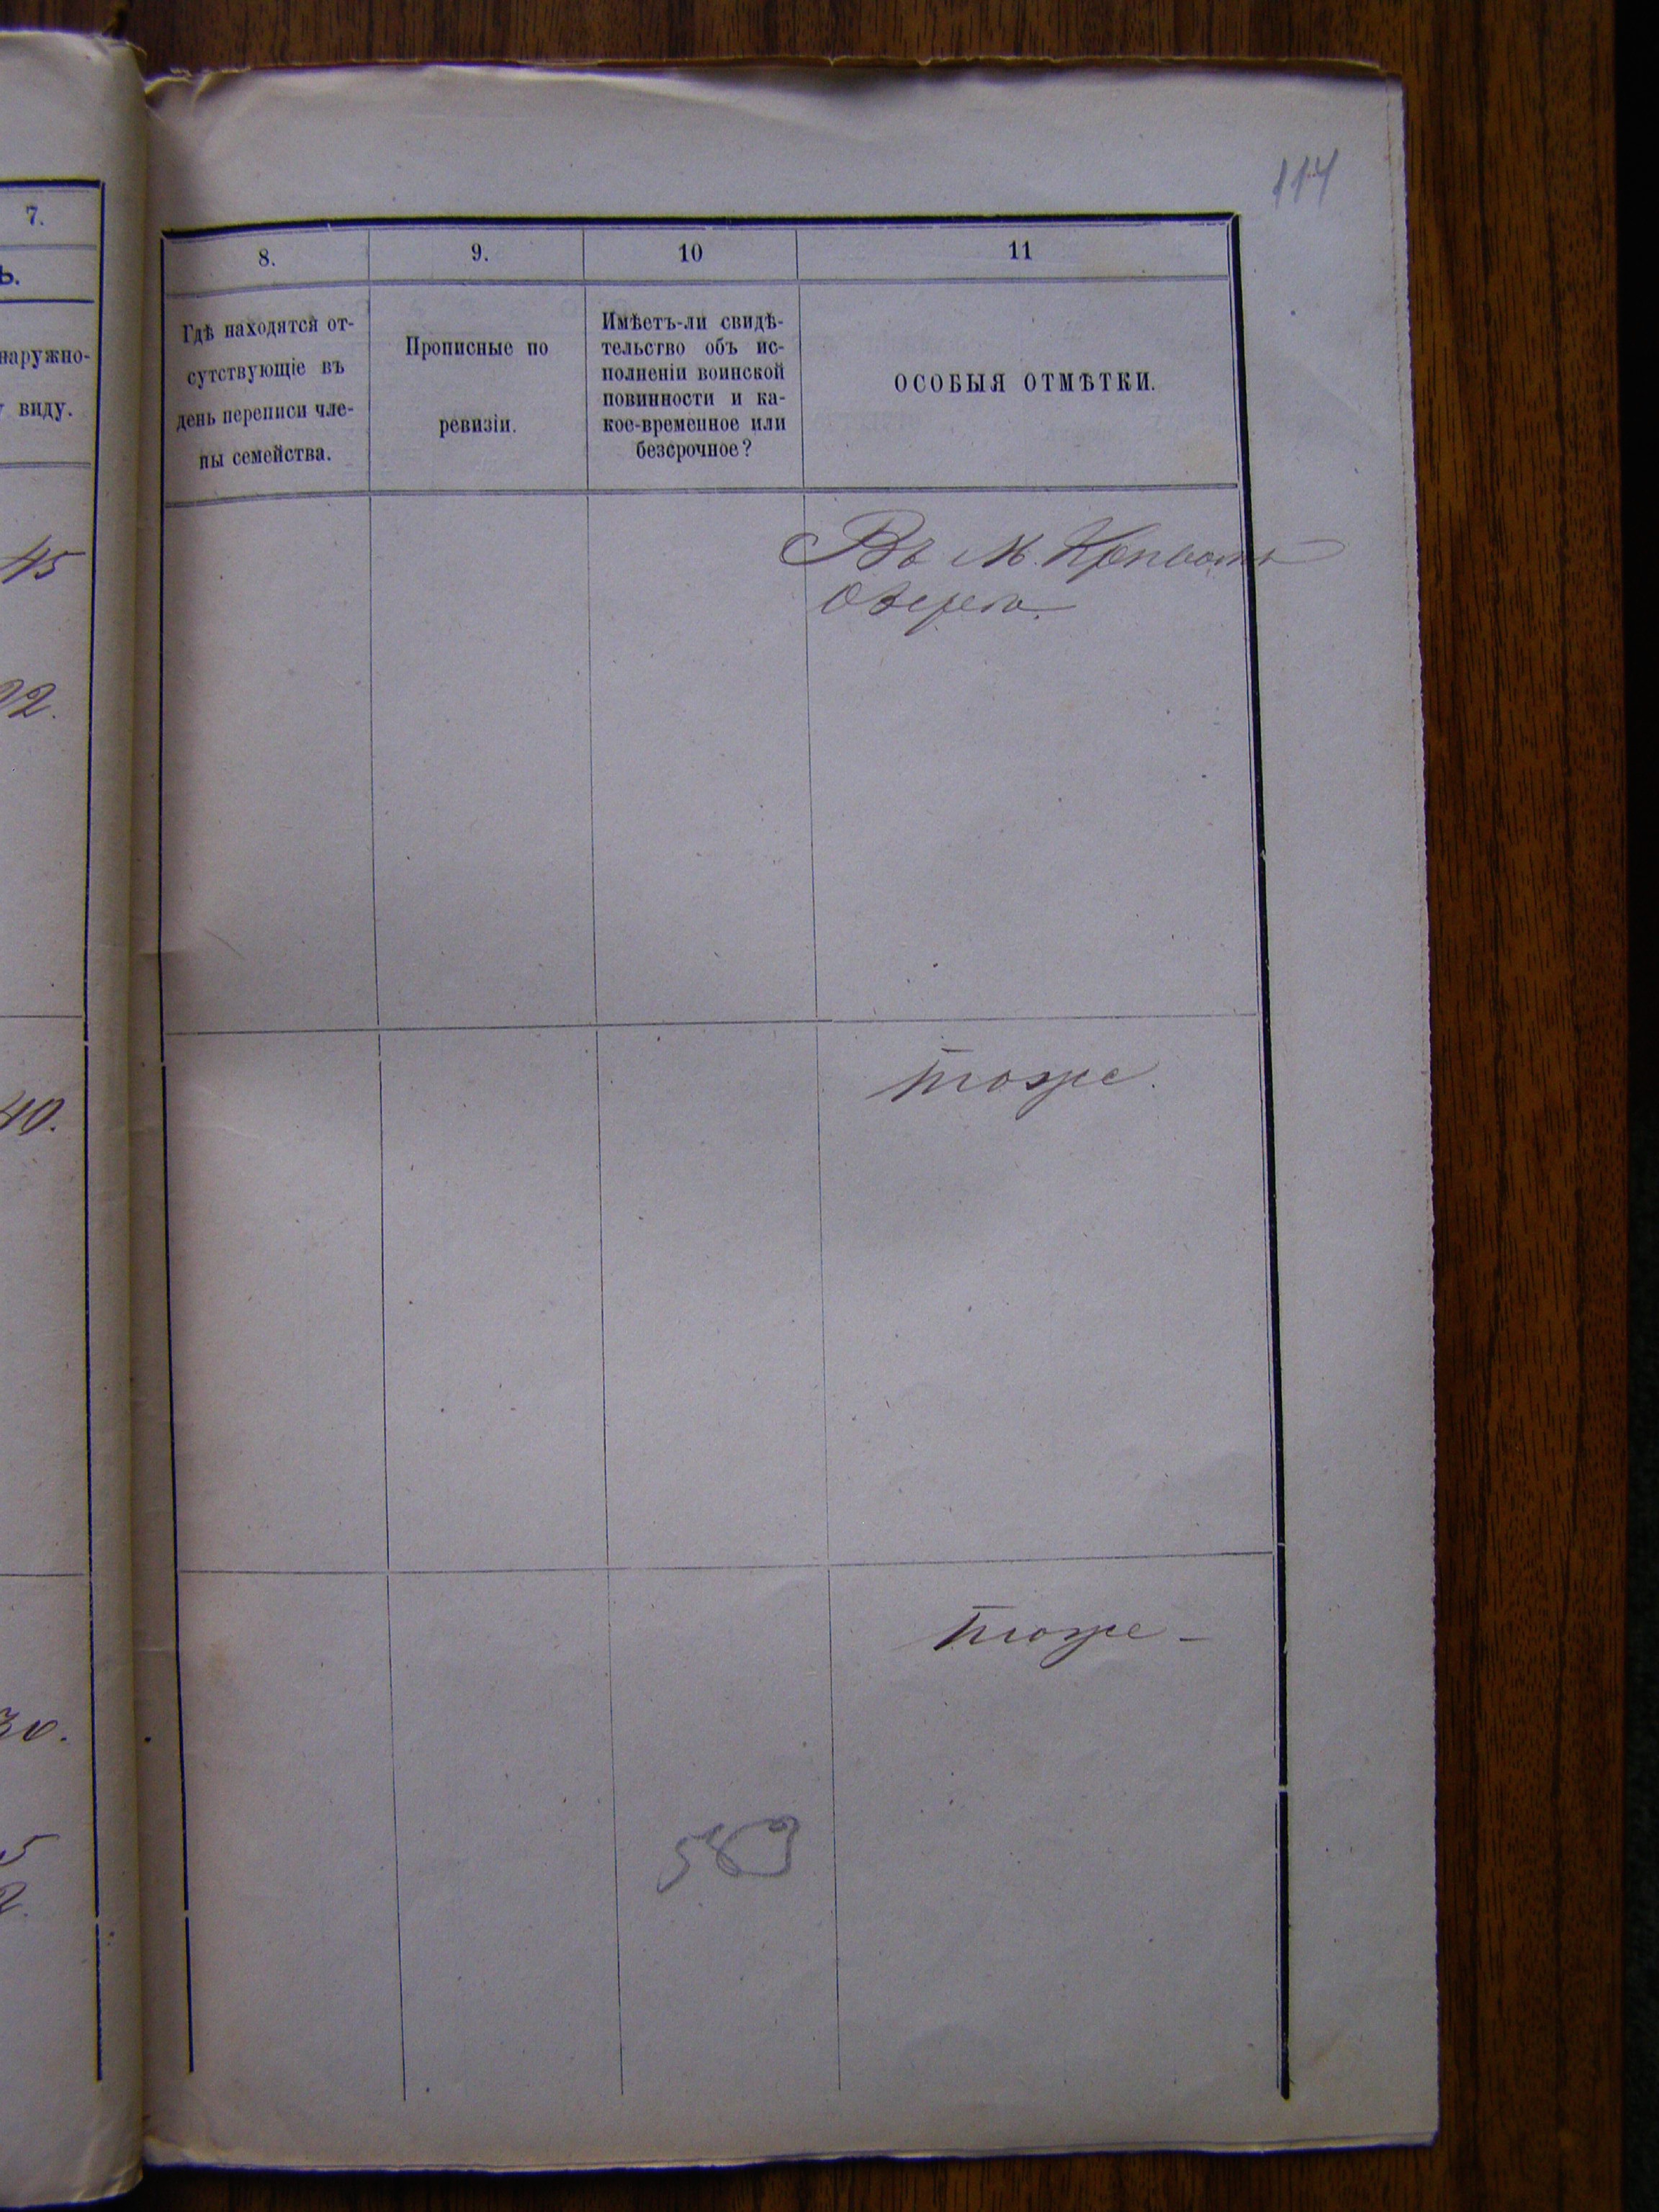 114
7.
ь.
наружно-
виду.
45
22.
40.
30.
5
2.
8.
9.
10
11
Гдѣ находятся от-
сутствующіе въ
день переписи чле-
ны семейства.
Прописные по
ревизіи.
Имѣетъ-ли свидѣ-
тельство объ ис-
полненіи воинской
повинности и ка-
кое-временное или
безсрочное?
ОСОБЫЯ ОТМѢТКИ.
Въ М. Кривомъ
Озерѣ.
тоже.
тоже -